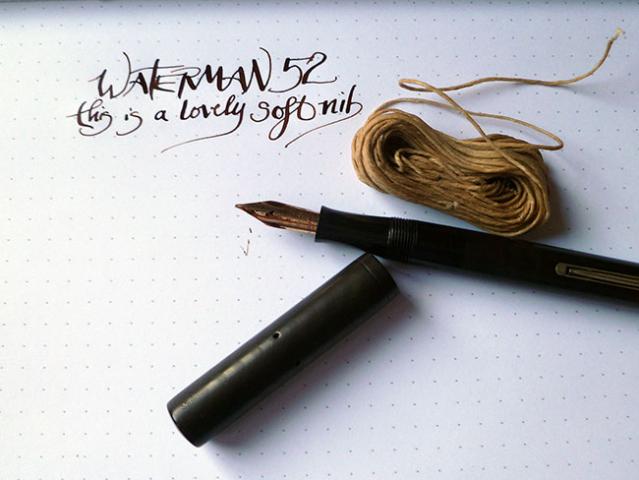 WATERMAN 52
this is a lovely soft nib